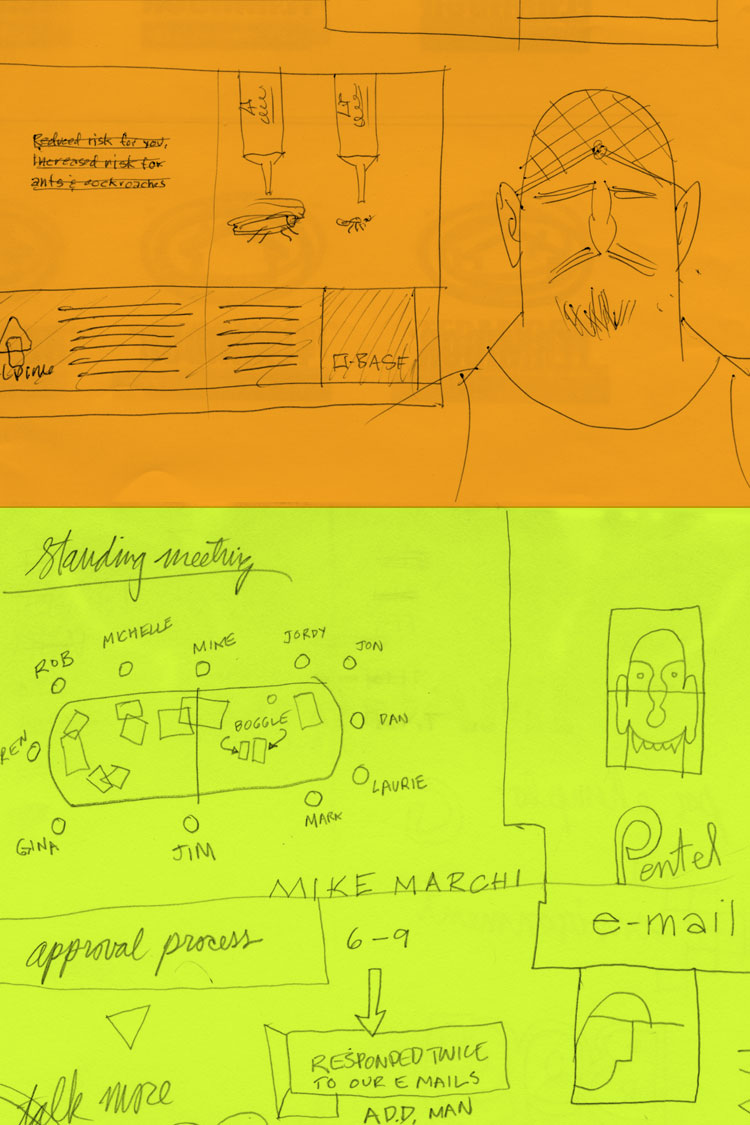 Reduced risk for you,
Increased risk for
ants & cockroaches
-BASE
Standing meeting
ROB
MICHELLE
MIKE
JORDY
JON
REN
BOGGLE
DAN
LAURIE
GINA
JIM
MARK
Pentel
MIKE MARCHI
e-mail
approval process
6-9
RESPONDED TWICE
TO OUR E MAILS
talk more
A.D.D, MAN